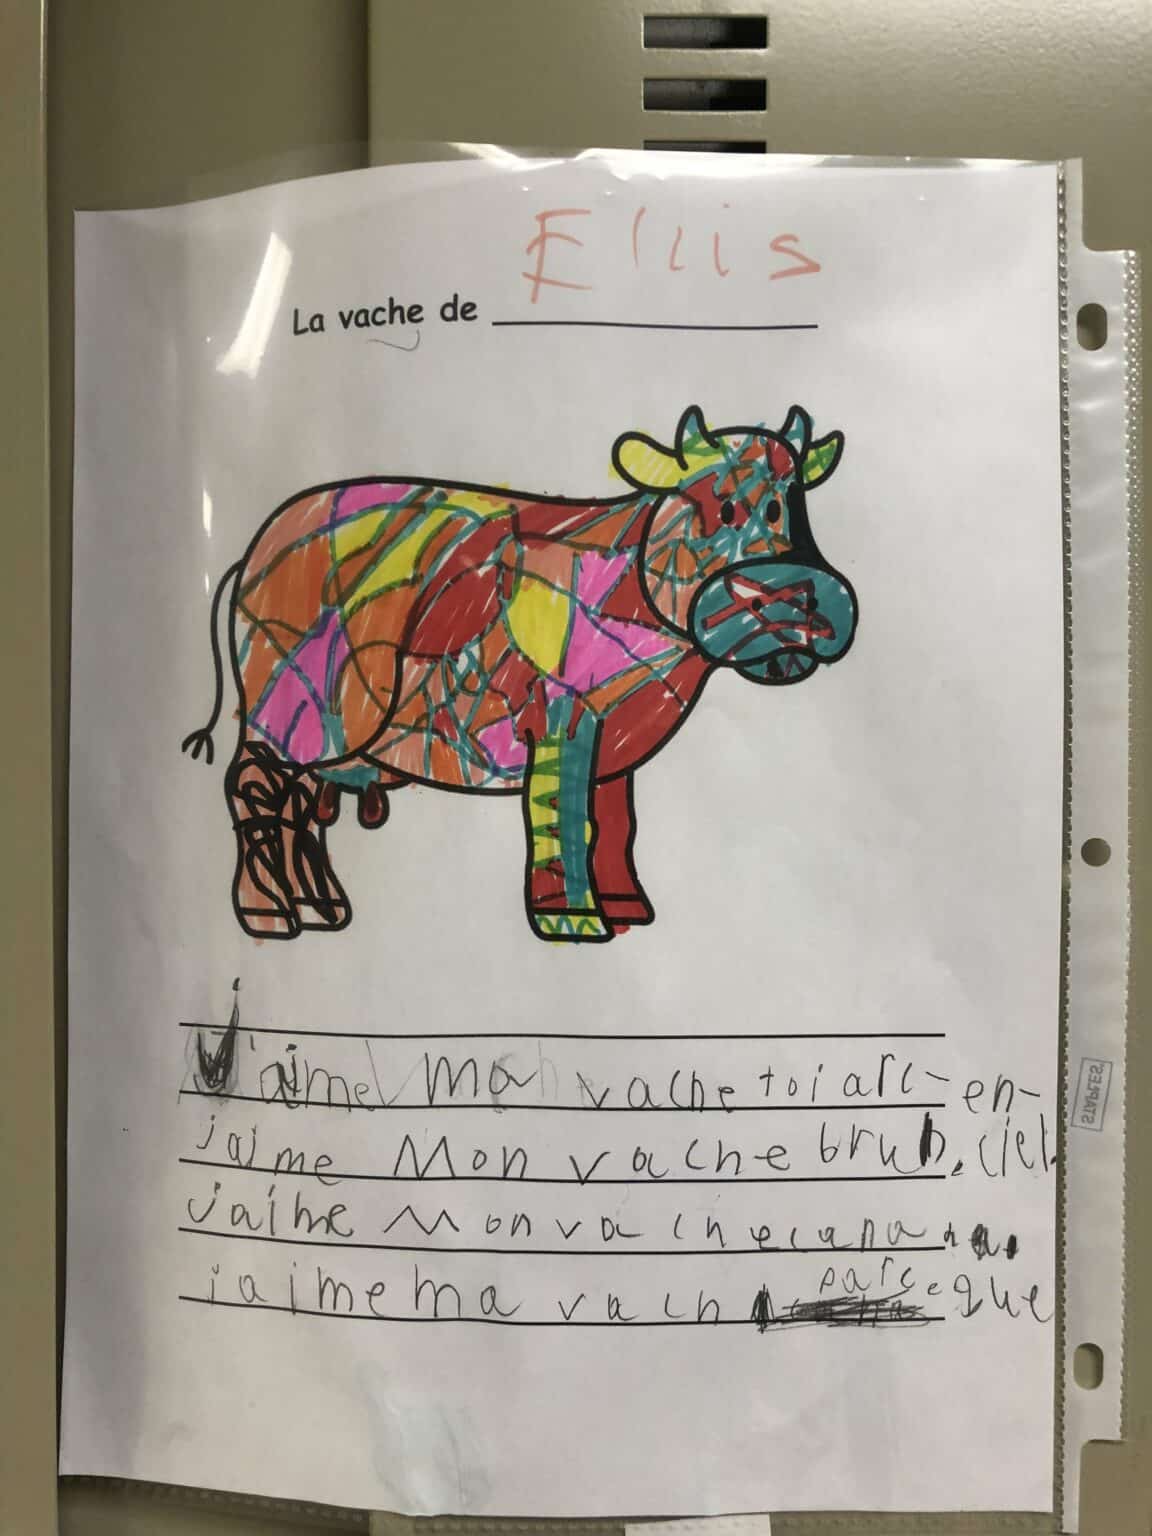 Ellis
La vache de
J'aime ma vache toi arc-en-
jaime Mon vache brun. ciel.
jaime Mon vache
jaime ma vach parce que
STAPLES